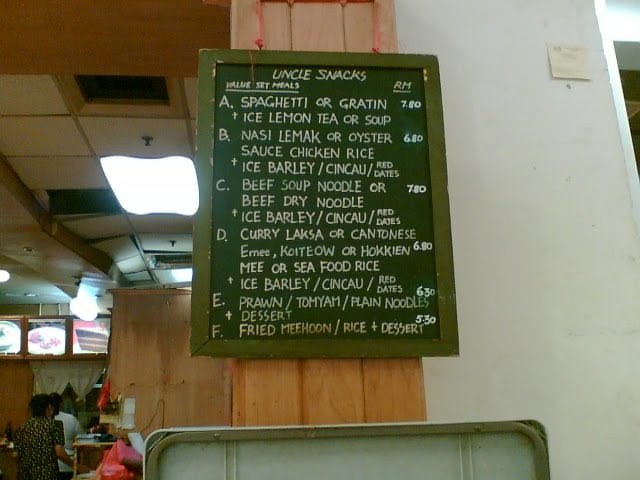 UNCLE SNACKS
VALUE SET MEALS RM
A. SPAGHETTI OR GRATIN 7.80
+ ICE LEMON TEA OR SOUP
B. NASI LEMAK OR OYSTER 6.80
SAUCE CHICKEN RICE
+ ICE BARLEY / CINCAU / RED DATES
C. BEEF SOUP NOODLE OR 7.80
BEEF DRY NOODLE
+ ICE BARLEY / CINCAU / RED DATES
D. CURRY LAKSA OR CANTONESE
Emee, KOITEOW OR HOKKIEN 6.80
MEE OR SEA FOOD RICE
+ ICE BARLEY / CINCAU / RED DATES
E. PRAWN / TOMYAM / PLAIN NOODLES 6.30
+ DESSERT
F. FRIED MEEHOON / RICE + DESSERT 5.30